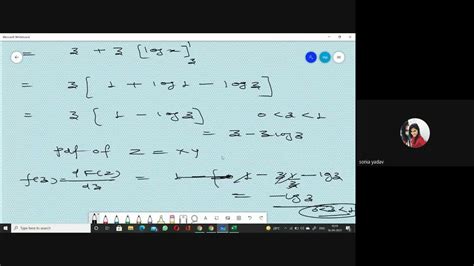 Microsoft Whiteboard
= z + z [log x]¹z
= z [ 1 + log 1 - log z ]
= z [ 1 - log z ] 0 < z < 1
= z - z log z
pdf of z = xy
f(z) = dF(z)/dz = 1 - - log z
= - log z
0 < z < 1
sonia yadav
Type here to search